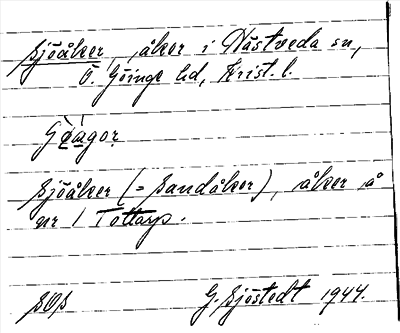 Sjöåker, åker i Nästveda sn,
Ö. Göinge hd, Krist. l.
Sjöåker (= Sandåker), åker å
nr 1 Tottarp.
SOS G. Sjöstedt 1944.